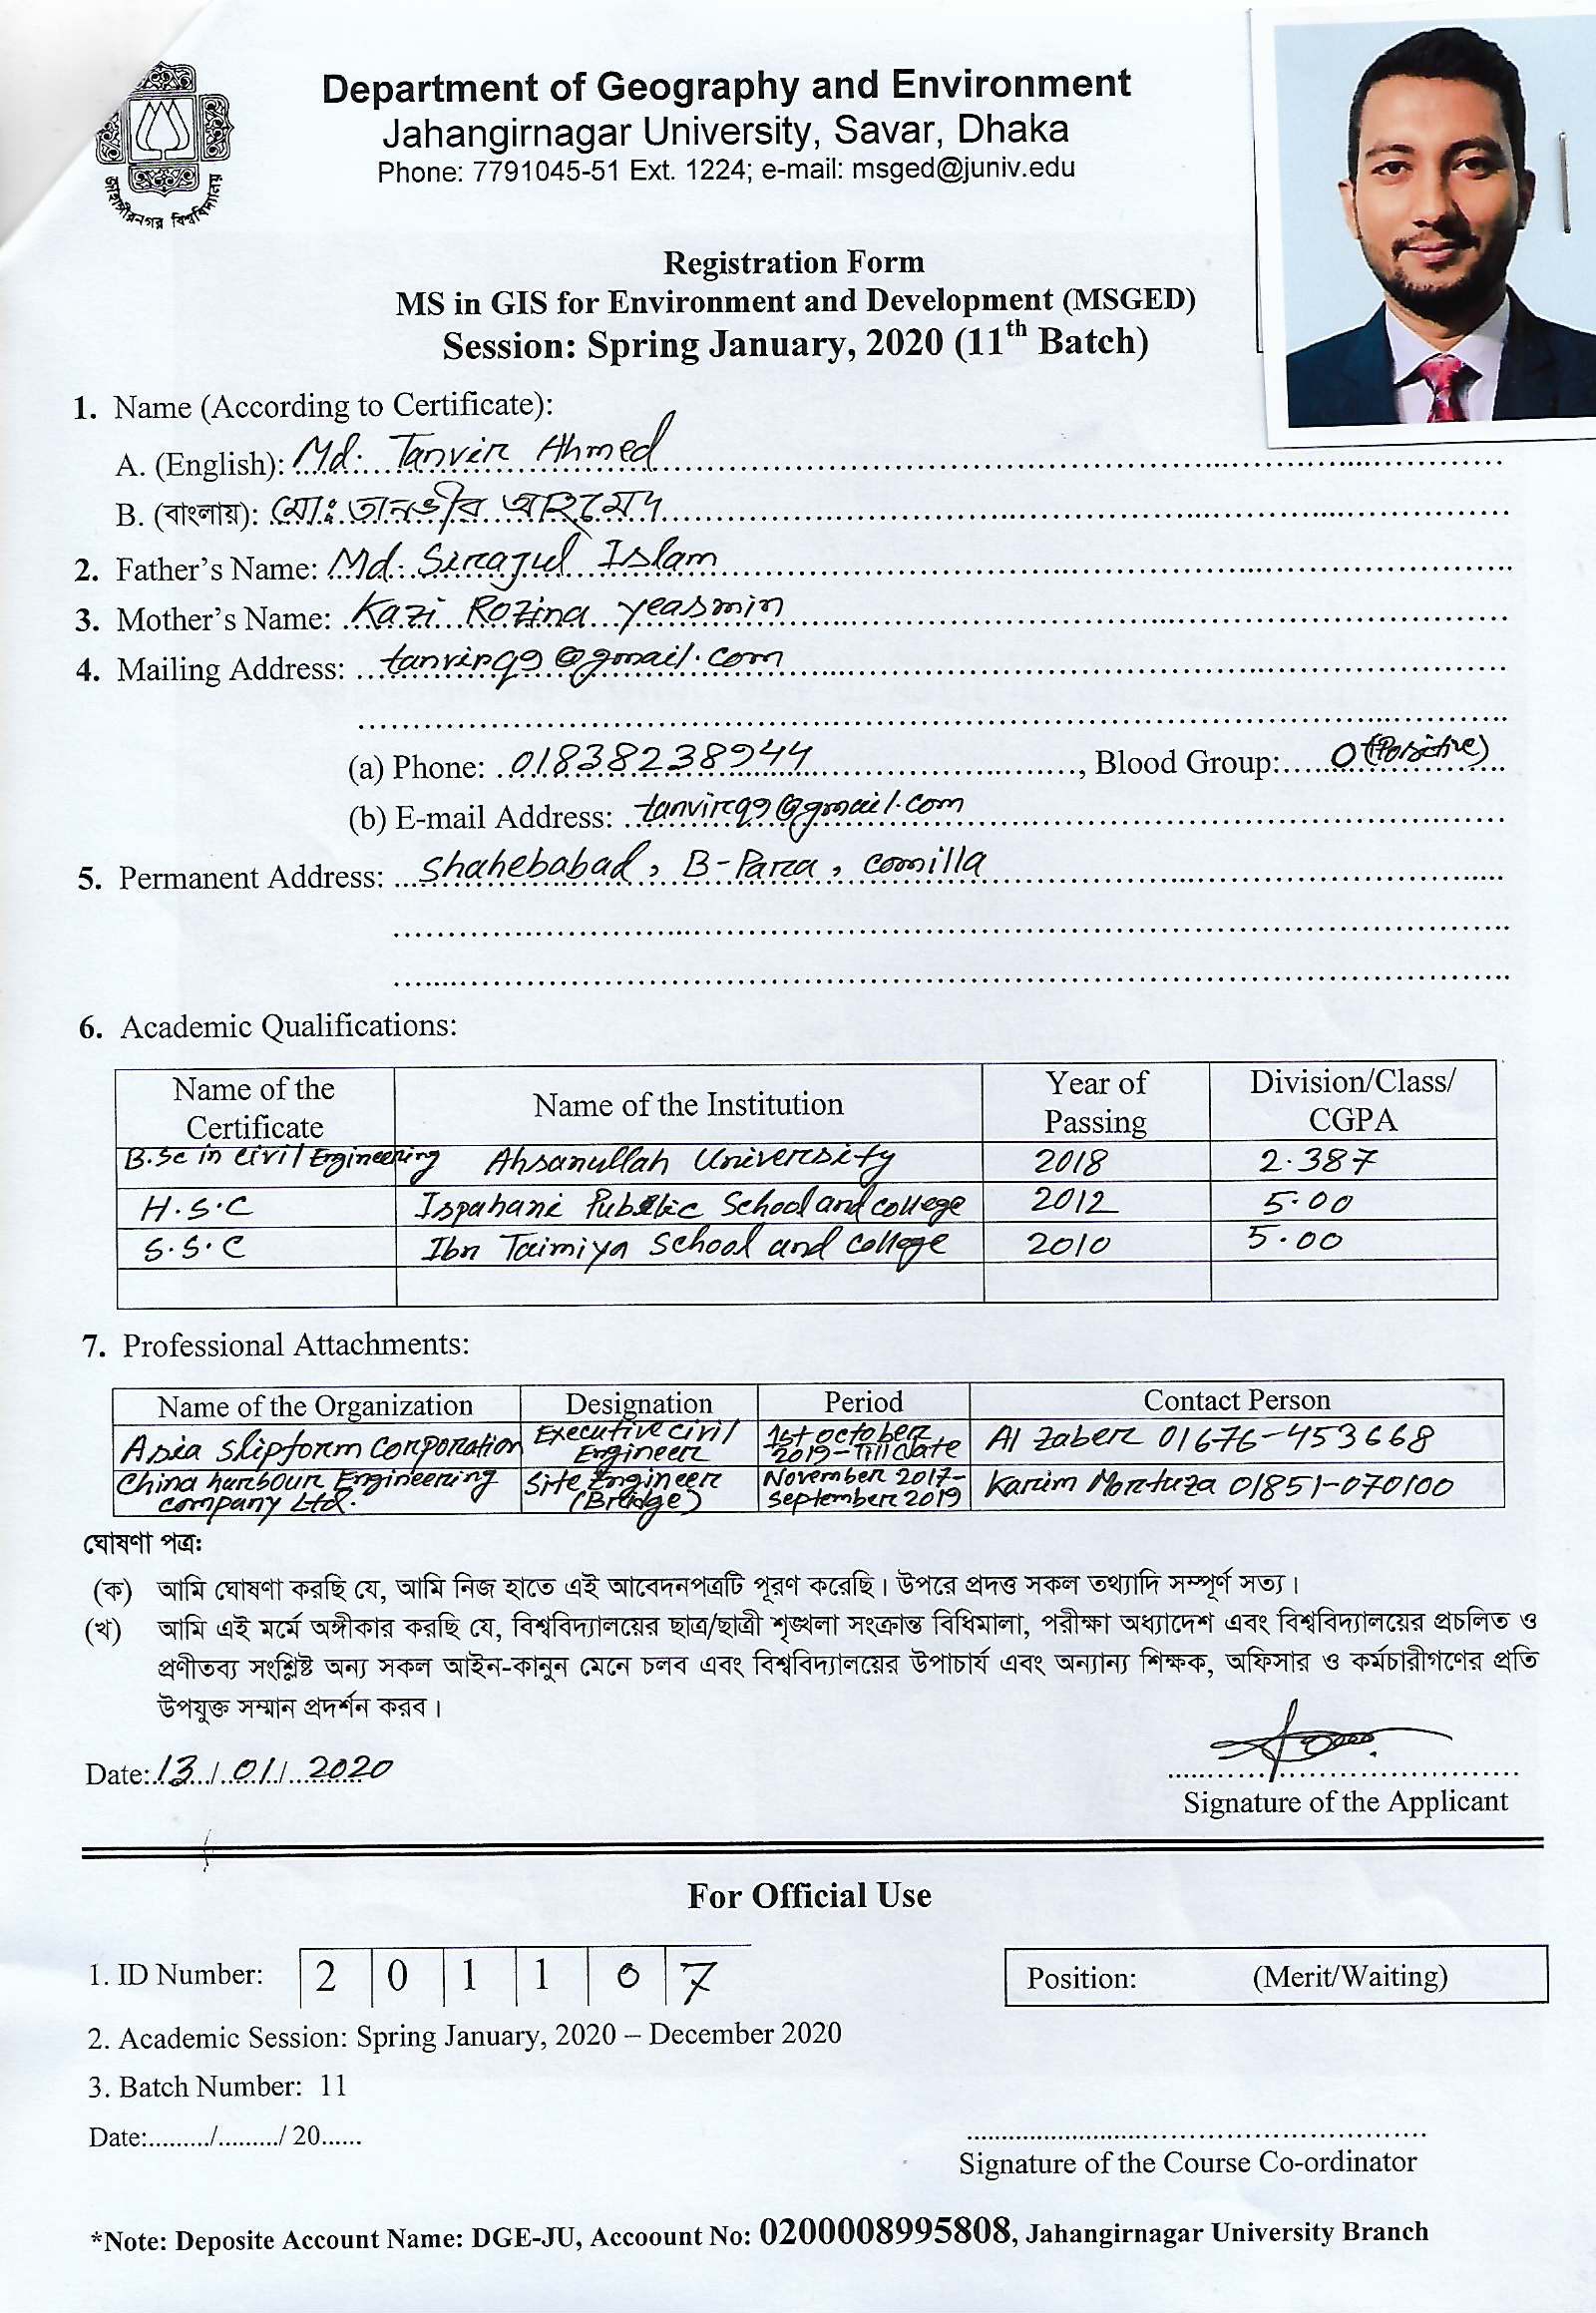 জাহাঙ্গীরনগর বিশ্ববিদ্যালয়
Department of Geography and Environment
Jahangirnagar University, Savar, Dhaka
Phone: 7791045-51 Ext. 1224; e-mail: msged@juniv.edu
Registration Form
MS in GIS for Environment and Development (MSGED)
Session: Spring January, 2020 (11th Batch)
1. Name (According to Certificate):
A. (English): Md. Tanvir Ahmed
B. (বাংলায়): মোঃ তানভীর আহমেদ
2. Father's Name: Md. Sirajul Islam
3. Mother's Name: Kazi Rozina Yeasmin
4. Mailing Address: tanvirq9@gmail.com
(a) Phone: 01838238944, Blood Group: O (Positive)
(b) E-mail Address: tanvirq9@gmail.com
5. Permanent Address: Shahebabad, B-Para, Comilla
6. Academic Qualifications:
Name of the Certificate Name of the Institution Year of Passing Division/Class/ CGPA
B.Sc in Civil Engineering Ahsanullah University 2018 2.387
H.S.C Ispahani Public School and College 2012 5.00
S.S.C Ibn Taimiya School and College 2010 5.00
7. Professional Attachments:
Name of the Organization Designation Period Contact Person
Asia Slipform Corporation Executive Civil Engineer 1st October 2019-Till date Al Zaber 01676-453668
China harbour Engineering Company Ltd. Site Engineer (Bridge) November 2017-September 2019 Karim Mortuza 01851-070100
ঘোষণা পত্র:
(ক) আমি ঘোষণা করছি যে, আমি নিজ হাতে এই আবেদনপত্রটি পূরণ করেছি। উপরে প্রদত্ত সকল তথ্যাদি সম্পূর্ণ সত্য।
(খ) আমি এই মর্মে অঙ্গীকার করছি যে, বিশ্ববিদ্যালয়ের ছাত্র/ছাত্রী শৃঙ্খলা সংক্রান্ত বিধিমালা, পরীক্ষা অধ্যাদেশ এবং বিশ্ববিদ্যালয়ের প্রচলিত ও
প্রণীতব্য সংশ্লিষ্ট অন্য সকল আইন-কানুন মেনে চলব এবং বিশ্ববিদ্যালয়ের উপাচার্য এবং অন্যান্য শিক্ষক, অফিসার ও কর্মচারীগণের প্রতি
উপযুক্ত সম্মান প্রদর্শন করব।
Date: 13/01/2020
Signature of the Applicant
For Official Use
1. ID Number: 2 0 1 1 0 7 Position: (Merit/Waiting)
2. Academic Session: Spring January, 2020 – December 2020
3. Batch Number: 11
Date:........./........./ 20......
Signature of the Course Co-ordinator
*Note: Deposite Account Name: DGE-JU, Accoount No: 0200008995808, Jahangirnagar University Branch